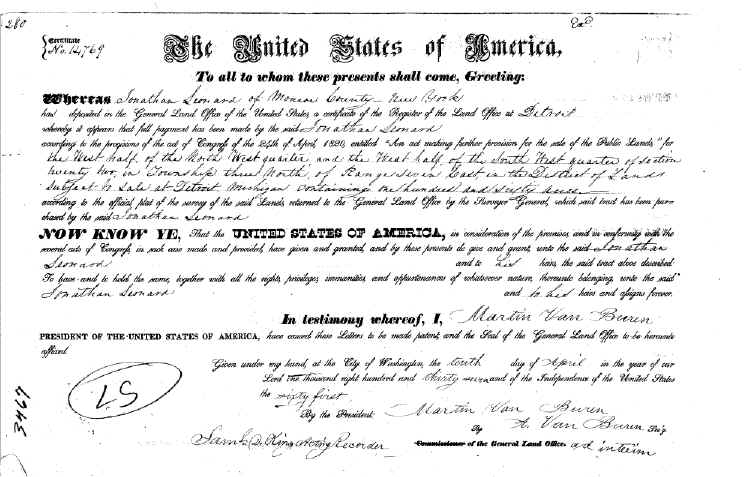 280
Certificate
No. 14769
The United States of America,
To all to whom these presents shall come, Greeting:
Whereas Jonathan Leonard of Monroe County New York
has deposited in the General Land Office of the United States, a certificate of the Register of the Land Office at Detroit
whereby it appears that full payment has been made by the said Jonathan Leonard
according to the provisions of the act of Congress of the 24th of April, 1820, entitled "An act making further provision for the sale of the Public Lands," for
the West half of the North West quarter, and the West half of the South West quarter of section
twenty two, in Township three North, of Range seven East in the District of Lands
subject to sale at Detroit Michigan containing one hundred and sixty acres
according to the official plat of the survey of the said Lands, returned to the General Land Office by the Surveyor General, which said tract has been pur-
chased by the said Jonathan Leonard
NOW KNOW YE, That the UNITED STATES OF AMERICA, in consideration of the premises, and in conformity with the
several acts of Congress, in such case made and provided, have given and granted, and by these presents do give and grant, unto the said Jonathan
Leonard and to his heirs, the said tract above described:
To have and to hold the same, together with all the rights, privileges, immunities and appurtenances of whatsoever nature, thereunto belonging, unto the said
Jonathan Leonard and to his heirs and assigns forever.
In testimony whereof, I, Martin Van Buren
PRESIDENT OF THE UNITED STATES OF AMERICA, have caused these Letters to be made patent, and the Seal of the General Land Office to be hereunto
affixed.
Given under my hand, at the City of Washington, the tenth day of April in the year of our
Lord one thousand eight hundred and thirty seven and of the Independence of the United States
the sixty first
By the President: Martin Van Buren
By A. Van Buren Sec'y
Saml. D. King Acting Recorder Commissioner of the General Land Office. ad interim
LS
3467